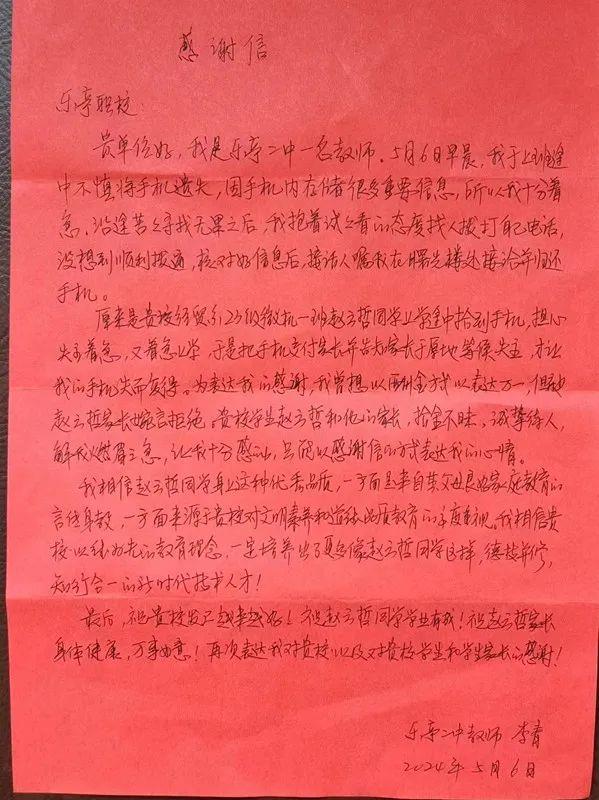 感谢信
乐亭职校:
贵单位好,我是乐亭二中一名教师。5月6日早晨,我于上班途
中不慎将手机遗失,因手机内存储很多重要信息,所以我十分着
急,沿途苦苦寻找无果之后,我抱着试试看的态度找人拨打自己电话,
没想到顺利拨通,核对好信息后,接话人嘱我在曙光楼处接洽并归还
手机。
原来是贵校经贸系23级微机一班赵云哲同学上学途中拾到手机,担心
失主着急,又着急上学,于是把手机交付家长并告知家长于原地等候失主,才让
我的手机失而复得。为表达我的感谢,我曾想以酬金方式以表达万一,但被
赵云哲家长婉言拒绝。贵校学生赵云哲和他的家长,拾金不昧,诚挚待人,
解我燃眉之急,让我十分感动,只能以感谢信的方式表达我的心情。
我相信赵云哲同学身上这种优秀品质,一方面是来自其父母良好家庭教育的
言传身教,一方面来源于贵校对文明素养和道德品质教育的高度重视。我相信贵
校以德为先的教育理念,一定培养出了更多像赵云哲同学这样,德技并修,
知行合一的新时代技术人才!
最后,祝贵校发展越来越好!祝赵云哲同学学业有成!祝赵云哲家长
身体健康,万事如意!再次表达我对贵校以及对贵校学生和学生家长的感谢!
乐亭二中教师 李青
2024年5月6日